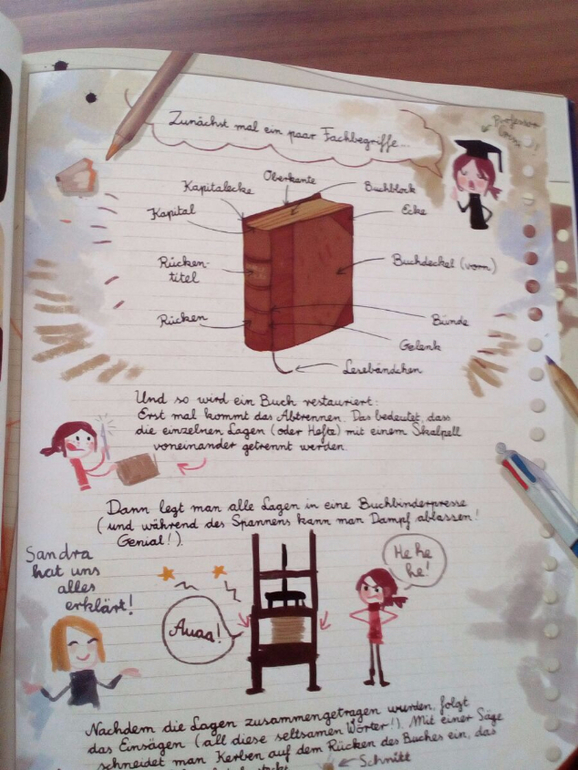 Zunächst mal ein paar Fachbegriffe...
Professor
Oberkante
Kapitalecke
Buchblock
Kapital
Ecke
Rücken-
titel
Buchdeckel (vorn)
Rücken
Bünde
Gelenk
Lesebändchen
Und so wird ein Buch restauriert:
Erst mal kommt das Abtrennen. Das bedeutet, dass
die einzelnen Lagen (oder Hefte) mit einem Skalpell
voneinander getrennt werden.
Dann legt man alle Lagen in eine Buchbinderpresse
(und während des Spannens kann man Dampf ablassen!
Genial!).
Sandra
hat uns
alles
erklärt!
He he
he!
Auaa!
Nachdem die Lagen zusammengetragen wurden, folgt
das Einsägen (all diese seltsamen Wörter!). Mit einer Säge
schneidet man Kerben auf dem Rücken des Buches ein, das
Schnitt